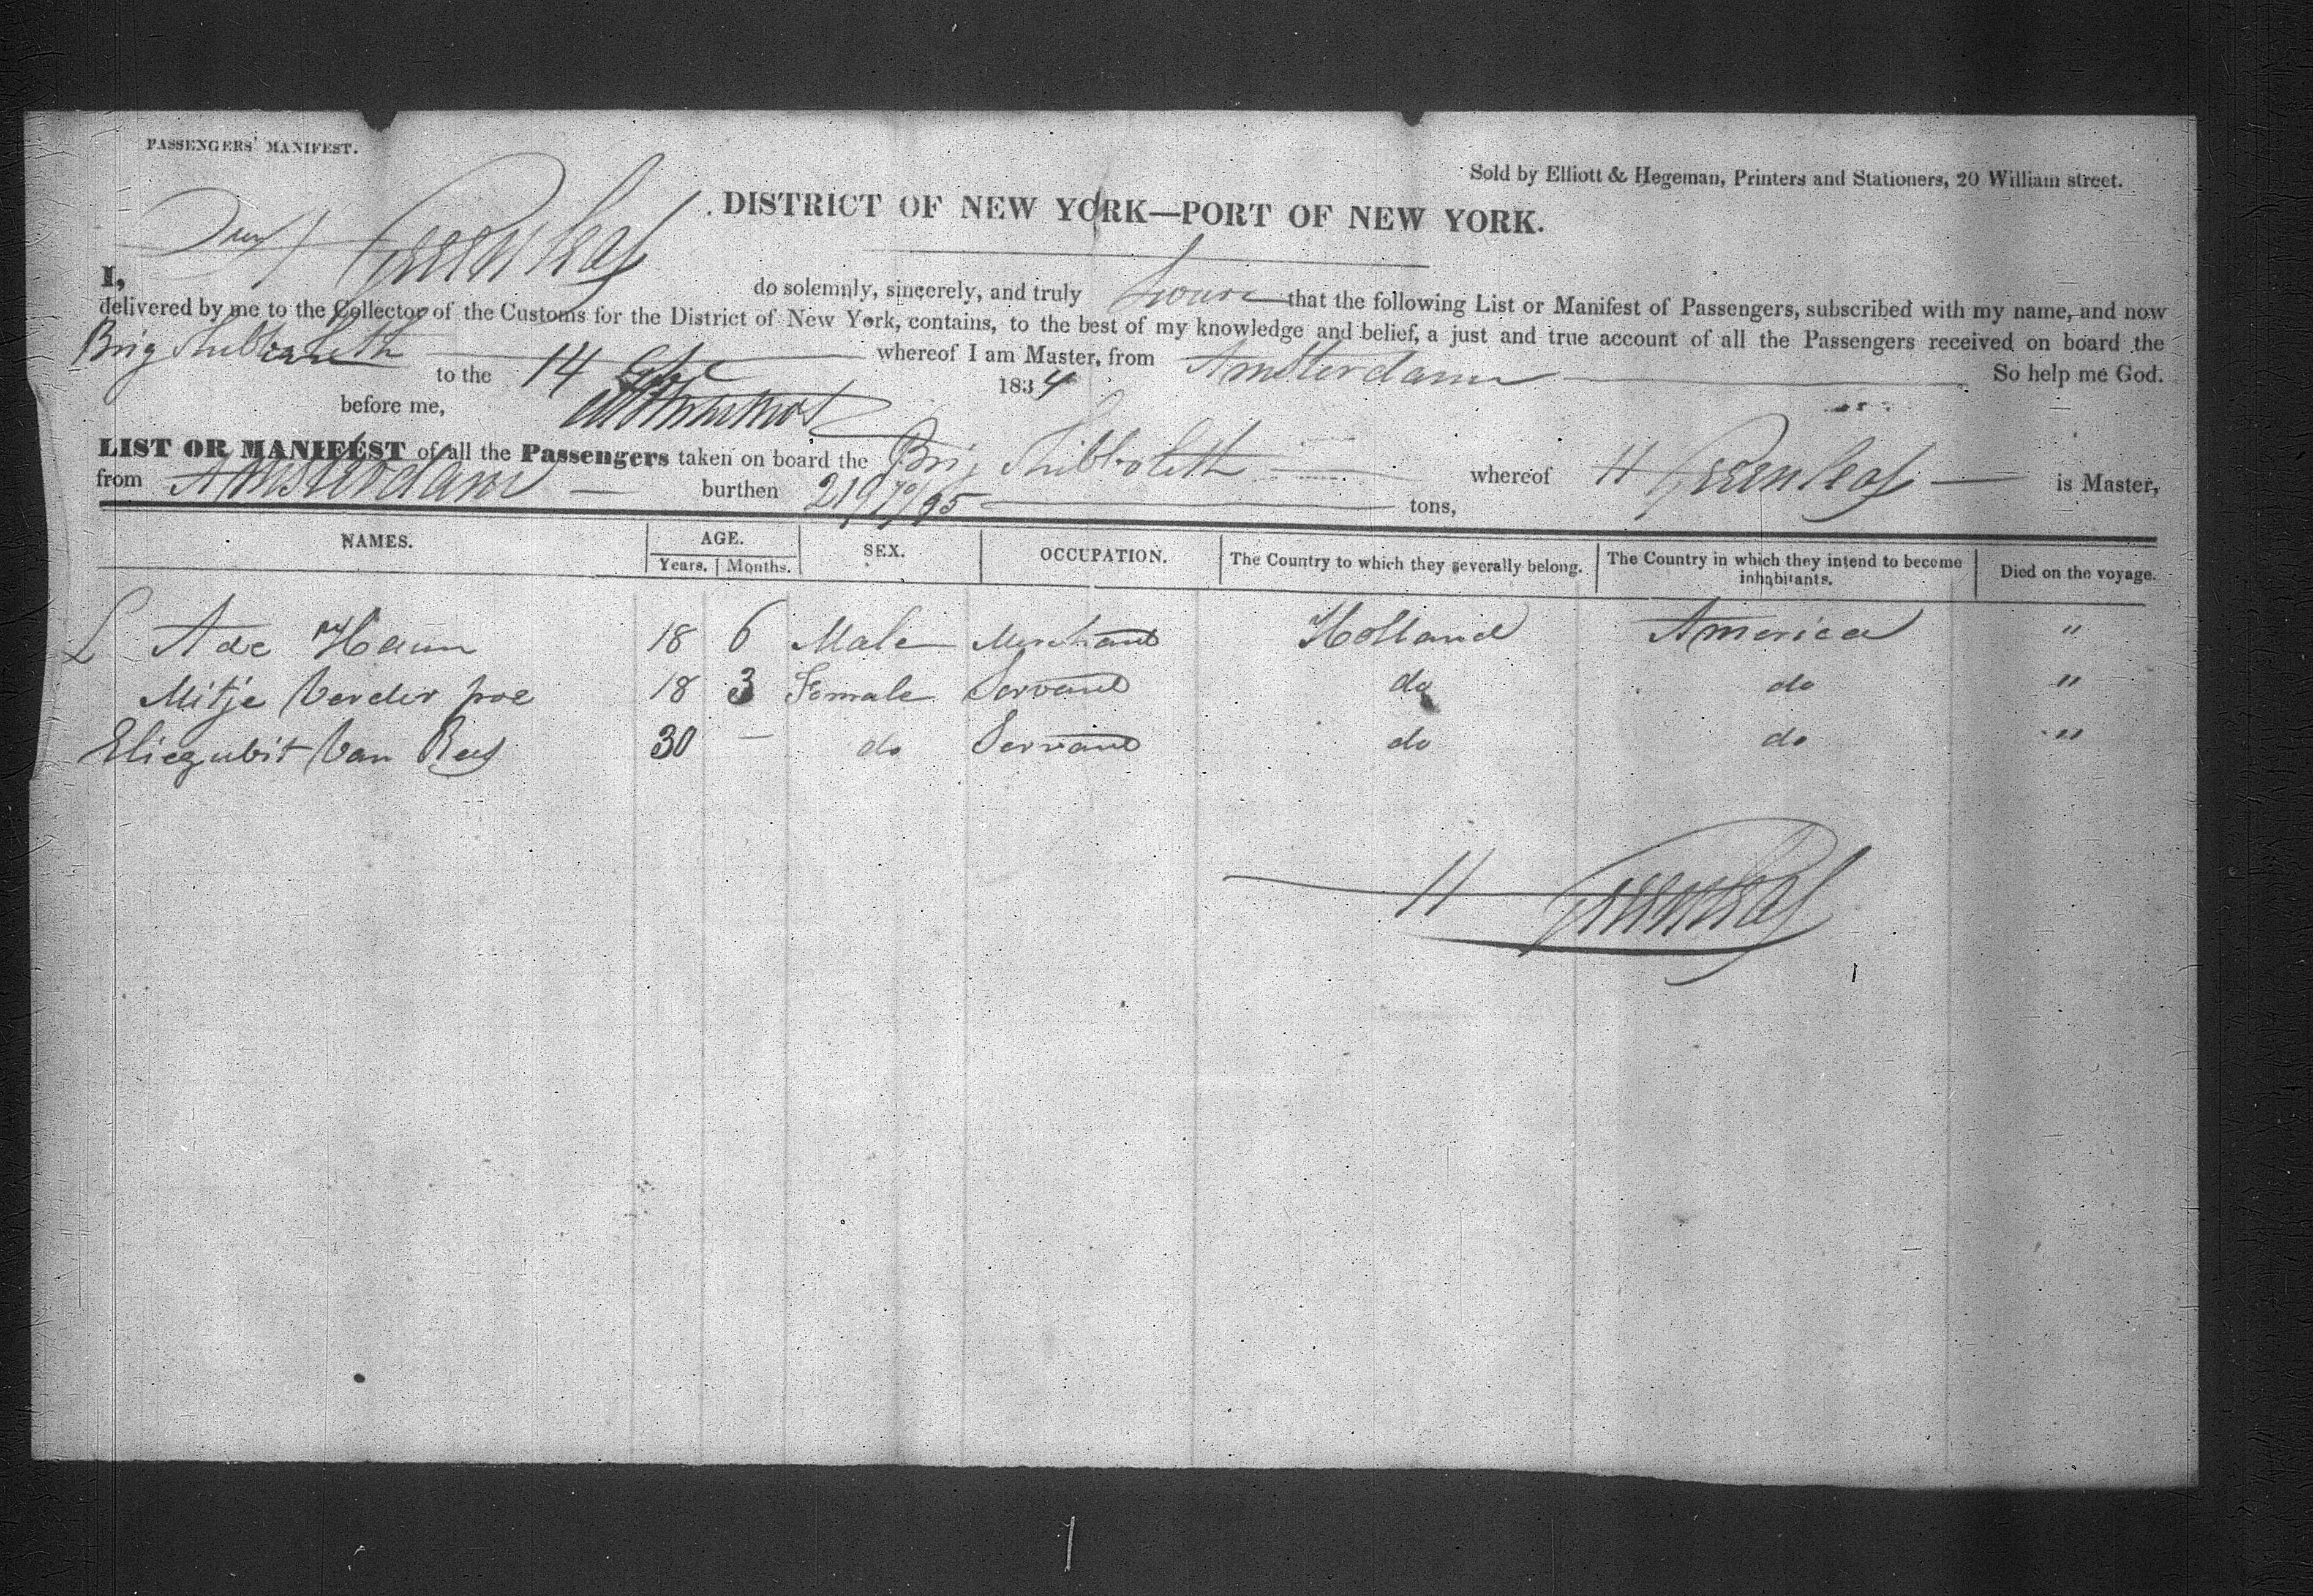 PASSENGERS' MANIFEST.
Sold by Elliott & Hegeman, Printers and Stationers, 20 William street.
DISTRICT OF NEW YORK—PORT OF NEW YORK.
I, Greenleaf do solemnly, sincerely, and truly that the following List or Manifest of Passengers, subscribed with my name, and now
delivered by me to the Collector of the Customs for the District of New York, contains, to the best of my knowledge and belief, a just and true account of all the Passengers received on board the
Brig Shibboleth whereof I am Master, from Amsterdam So help me God.
to the 14 1834
before me,
LIST OR MANIFEST of all the Passengers taken on board the Brig Shibboleth whereof H Greenleaf is Master,
from Amsterdam burthen 219 70/95 tons,
NAMES. AGE. SEX. OCCUPATION. The Country to which they severally belong. The Country in which they intend to become inhabitants. Died on the voyage.
Years. Months.
A de Haan 18 6 Male Merchant Holland America "
Mitje Verder poe 18 3 Female Servant do do "
Eliezubit Van Rees 30 — do Servant do do "
H Greenleaf